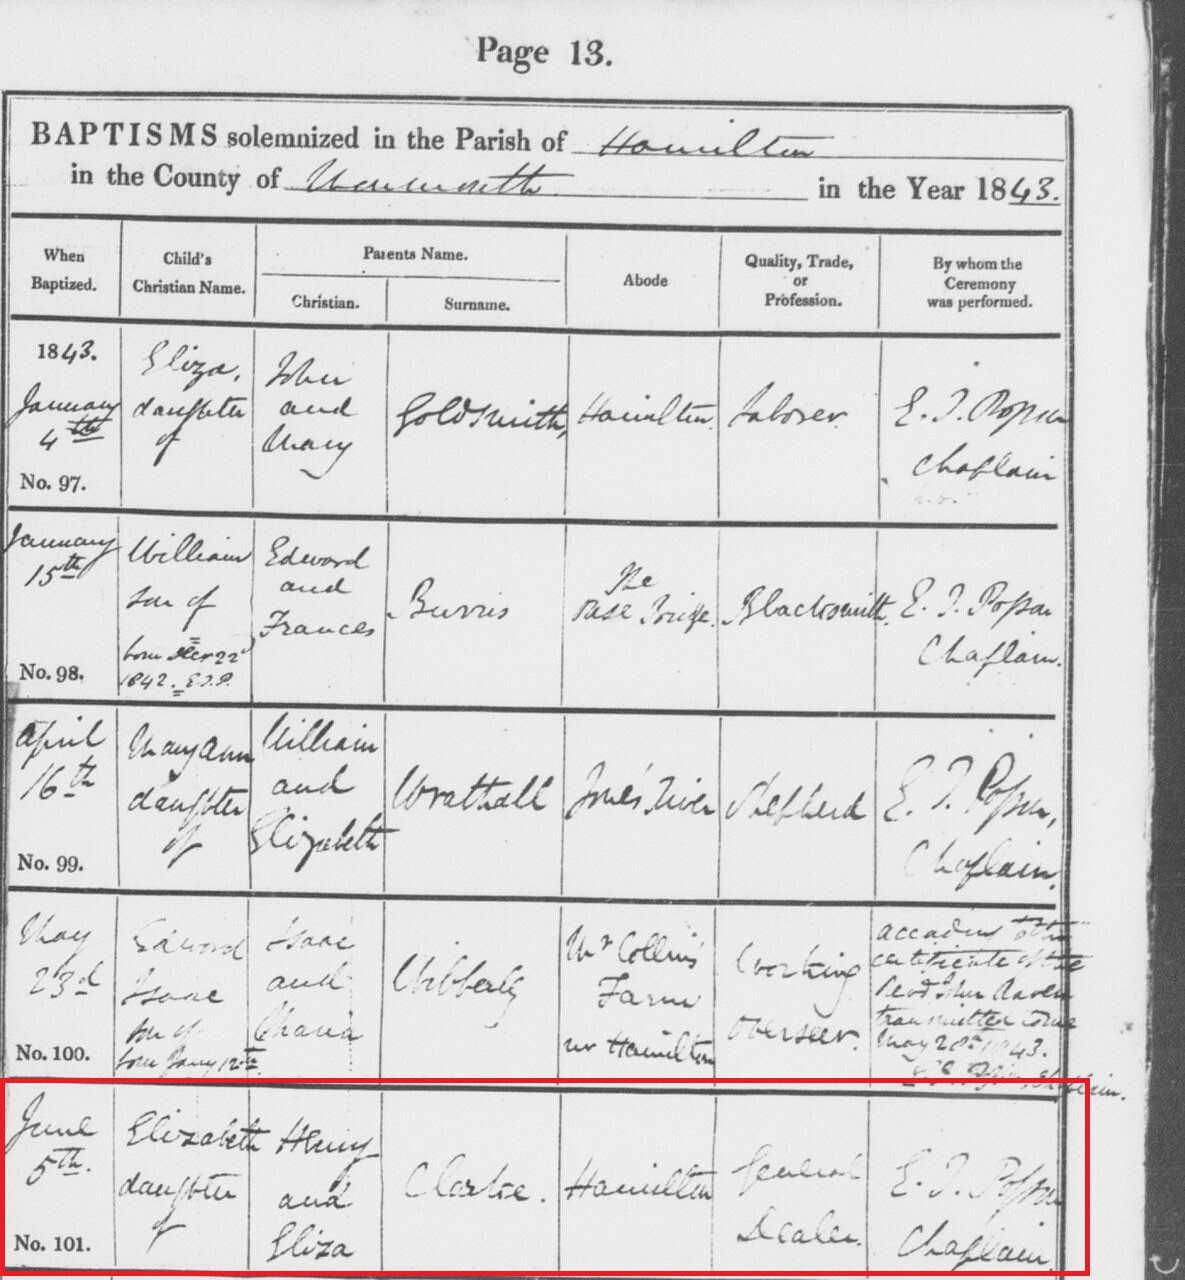 Page 13.
BAPTISMS solemnized in the Parish of Hamilton
in the County of Monmouth in the Year 1843.
When Baptized. Child's Christian Name. Parents Name. Christian. Surname. Abode Quality, Trade, or Profession. By whom the Ceremony was performed.
1843.
January 4th
No. 97.
Eliza,
daughter
of
John
and
Mary
Goldsmith,
Hamilton.
Laborer.
Chaplain
January
15th
No. 98.
William
son of
born Decr 22
1842. E.J.P.
Edward
and
Frances
Burris
The
Bridge.
Blacksmith.
Chaplain.
April
16th
No. 99.
Mary Ann
daughter
of
William
and
Elizabeth
Wrathall
River
Shepherd
Chaplain.
May
23d
No. 100.
Edward
Isaac
son of
born Jany 12th.
Isaac
and
Wibberly
Mr Collins'
Farm
nr Hamilton
Working
Overseer.
according to the
certificate of the
Revd John
transmitted to me
May 28th 1843.
Chaplain.
June
5th.
No. 101.
Elizabeth
daughter
of
Henry
and
Eliza
Clarke.
Hamilton
General
Dealer.
Chaplain.